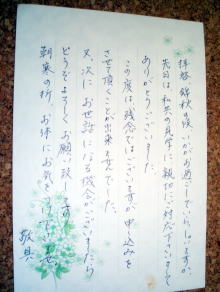 拝啓 錦秋の候、いかがお過ごしでいらっしゃいますか
先日は、私共の見学に、親切にご対応下さいまして
ありがとうございました。
この度は、残念ではございますが、申込みを
させて頂くことが出来ませんでした。
又、次に お世話になる機会がございましたら
どうぞよろしくお願い致します。
朝寒の折、お体にお気をつけ下さいませ
敬具